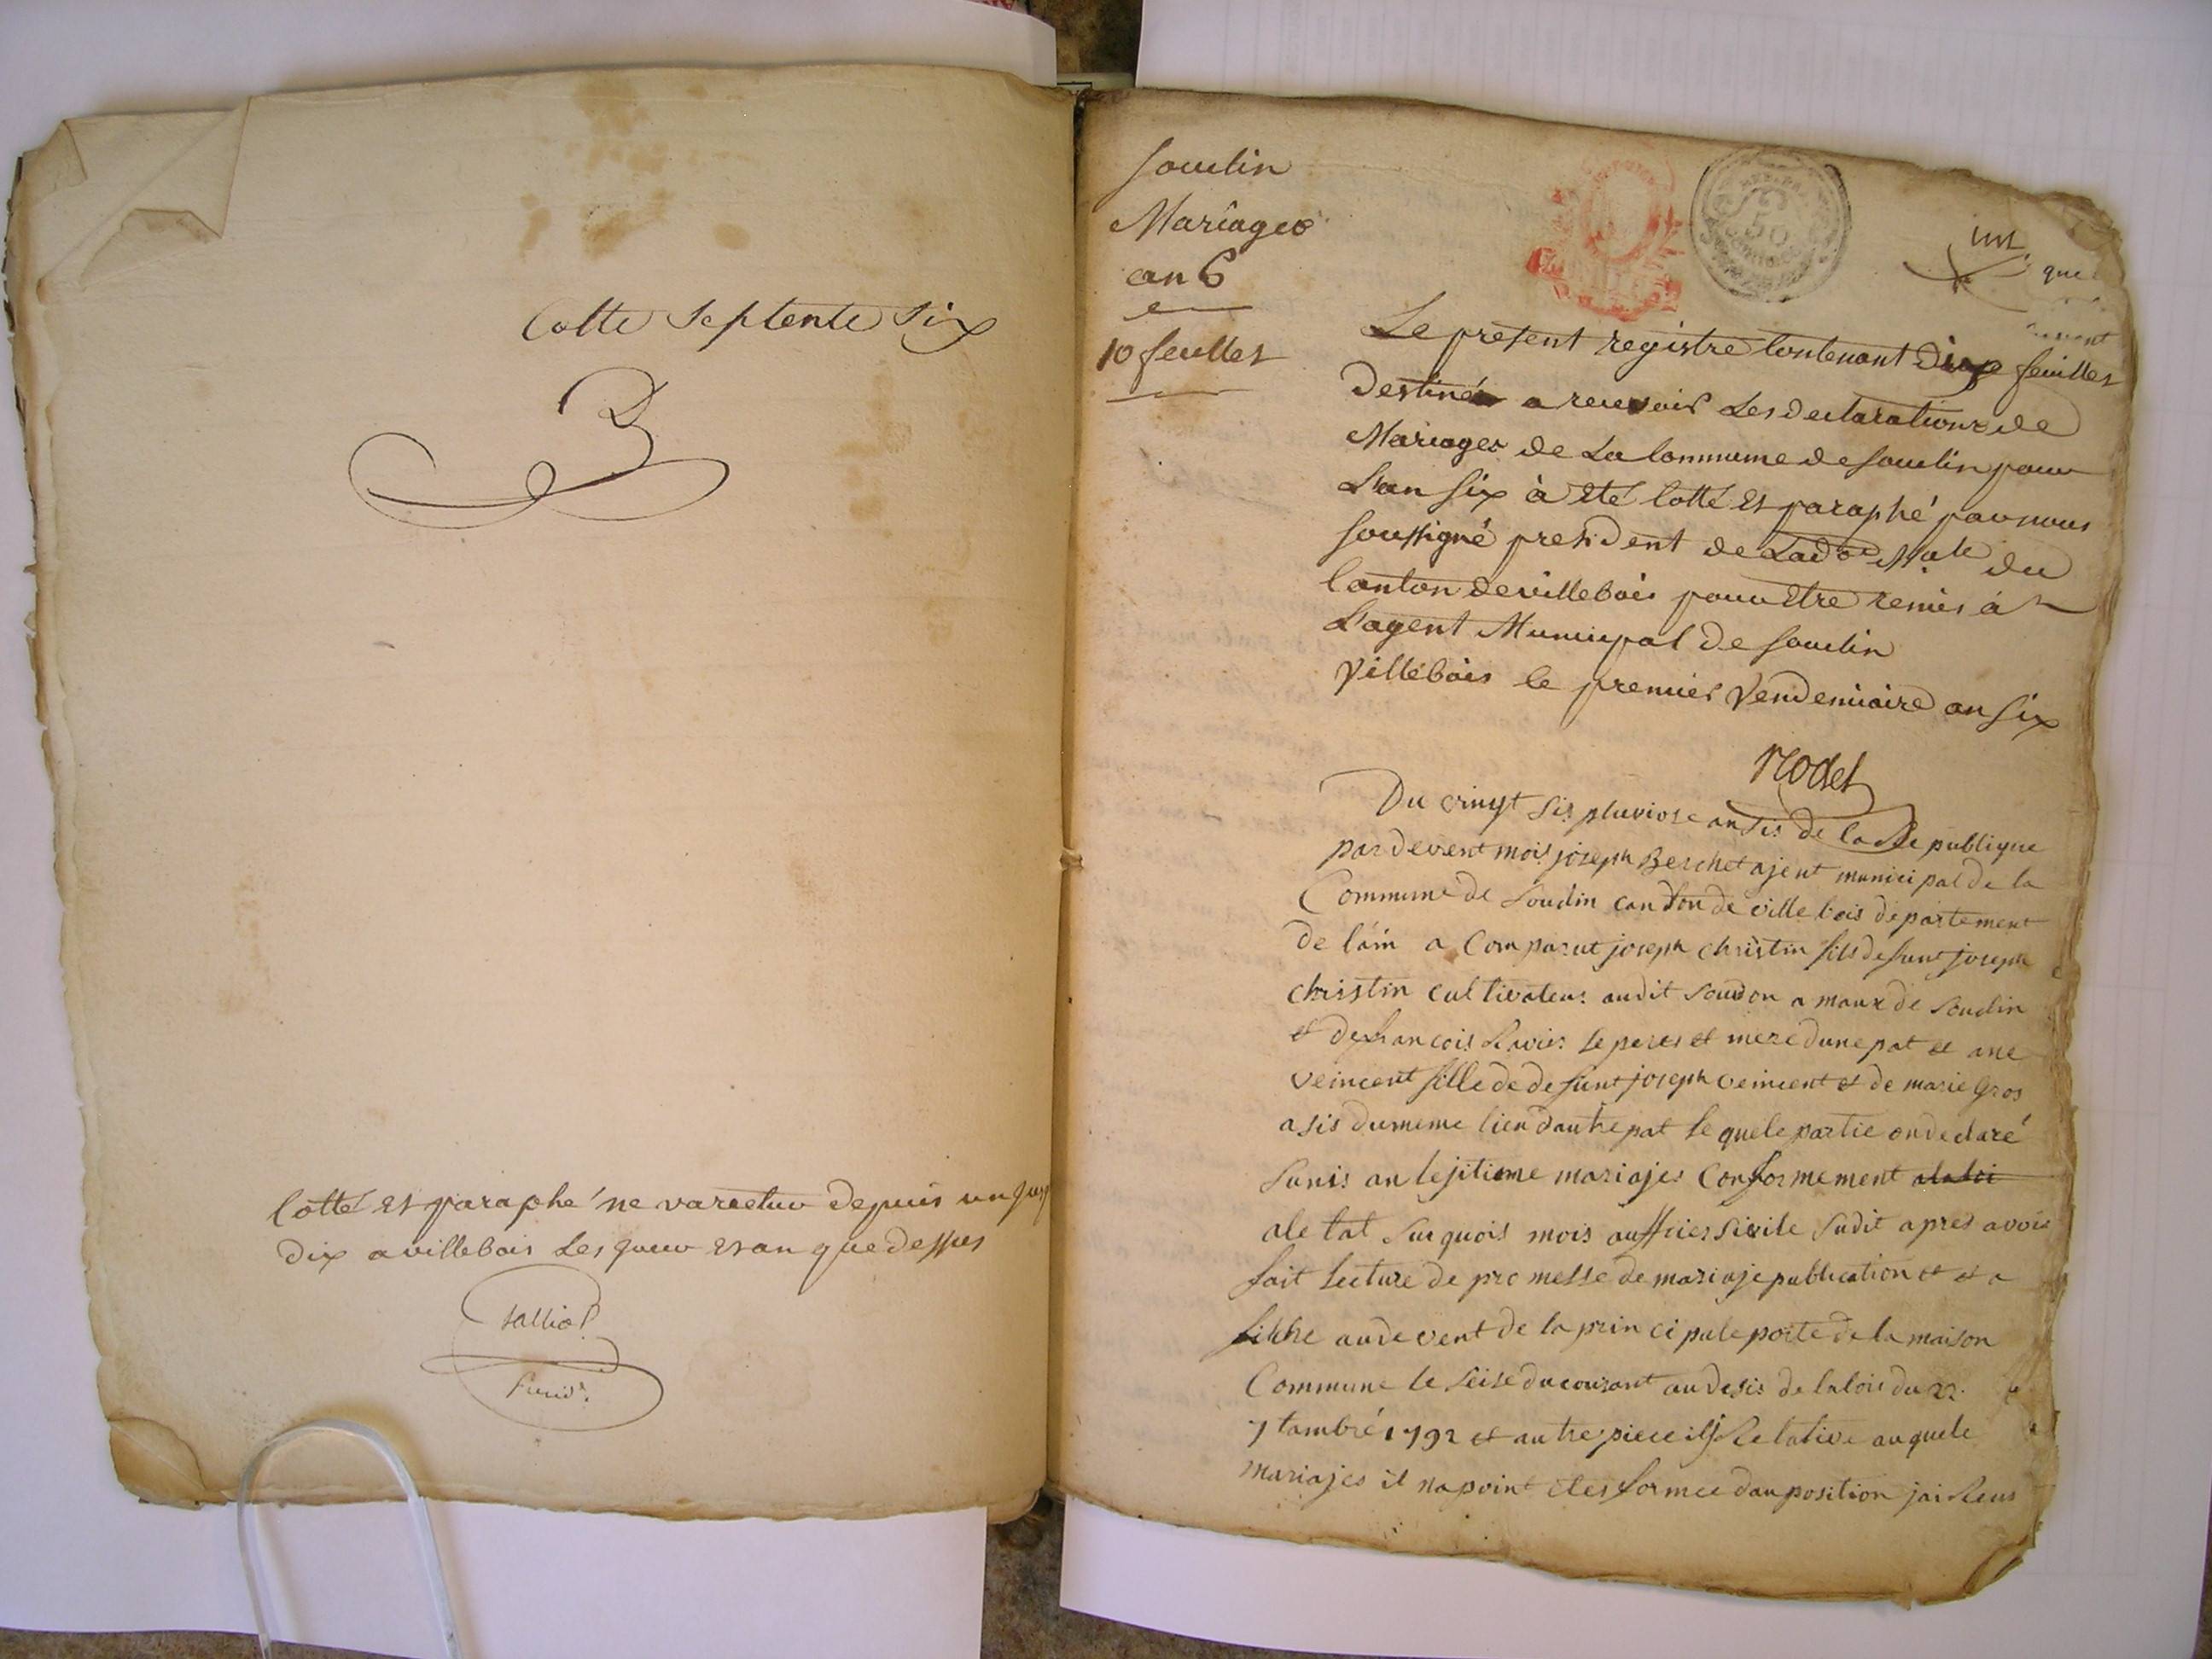 Cotte septente six
Cotté et paraphé ne varietur depuis un jusq
dix a villebois Les jour et an que dessus
Soudin
Mariages
an 6
10 feuilles
50
un
que
Le present registre Contenant Dix feuilles
Destinées a recevoir Les declarations de
Mariages de La Commune de Soudin pour
L'an Six à été Cotté et paraphé par nous
Soussigné president de Lad.on M.ale du
Canton de villebois pour Etre remis à
L'agent Municipal de Soudin
Villebois le premier Vendemiaire an Six
Rodet
Du vingt sis pluviose an sis de la Re publique
par devent moi joseph Berchet ajent municipal de la
Commune de Soudin canton de ville bois departement
de l'ain a Comparut joseph christin fils defunt joseph
christin cultivateur audit soudon a maux de Soudin
et de francois Ravier le peres et mere dune pat et ane
veincent fille de defunt joseph veincent et de marie Gros
a sis du meme lieu dautre pat le quele partie on declaré
sunir an lejitieme mariajes Conformement alaloi
ale tat sur quois mois auffiier sivile sudit apres avoir
fait lecture de pro messe de mariaje publication et et a
fikhe au devent de la prin ci pale porte de la maison
Commune le seise du courant au desir de la loi du 22
7 tambre 1792 et autre piece Relative au quele
mariajes il na point etes formee dauposition jai Reus